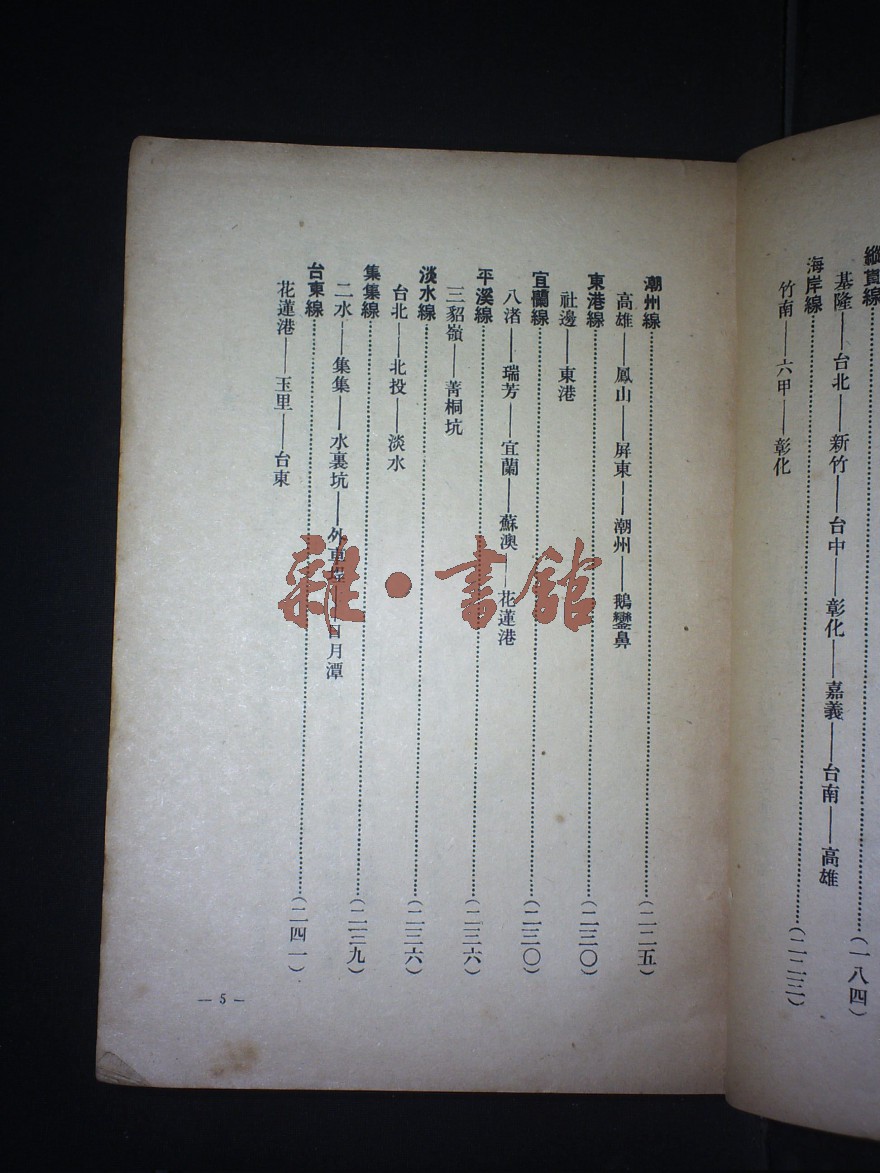 縱貫線……(一八四)
基隆——台北——新竹——台中——彰化——嘉義——台南——高雄
海岸線……(二二三)
竹南——六甲——彰化
潮州線……(二二五)
高雄——鳳山——屏東——潮州——鵝鑾鼻
東港線……(二三〇)
社邊——東港
宜蘭線……(二三〇)
八渚——瑞芳——宜蘭——蘇澳——花蓮港
平溪線……(二三六)
三貂嶺——菁桐坑
淡水線……(二三六)
台北——北投——淡水
集集線……(二三九)
二水——集集——水裏坑——外車埕——日月潭
台東線……(二四一)
花蓮港——玉里——台東
— 5 —
雜·書館